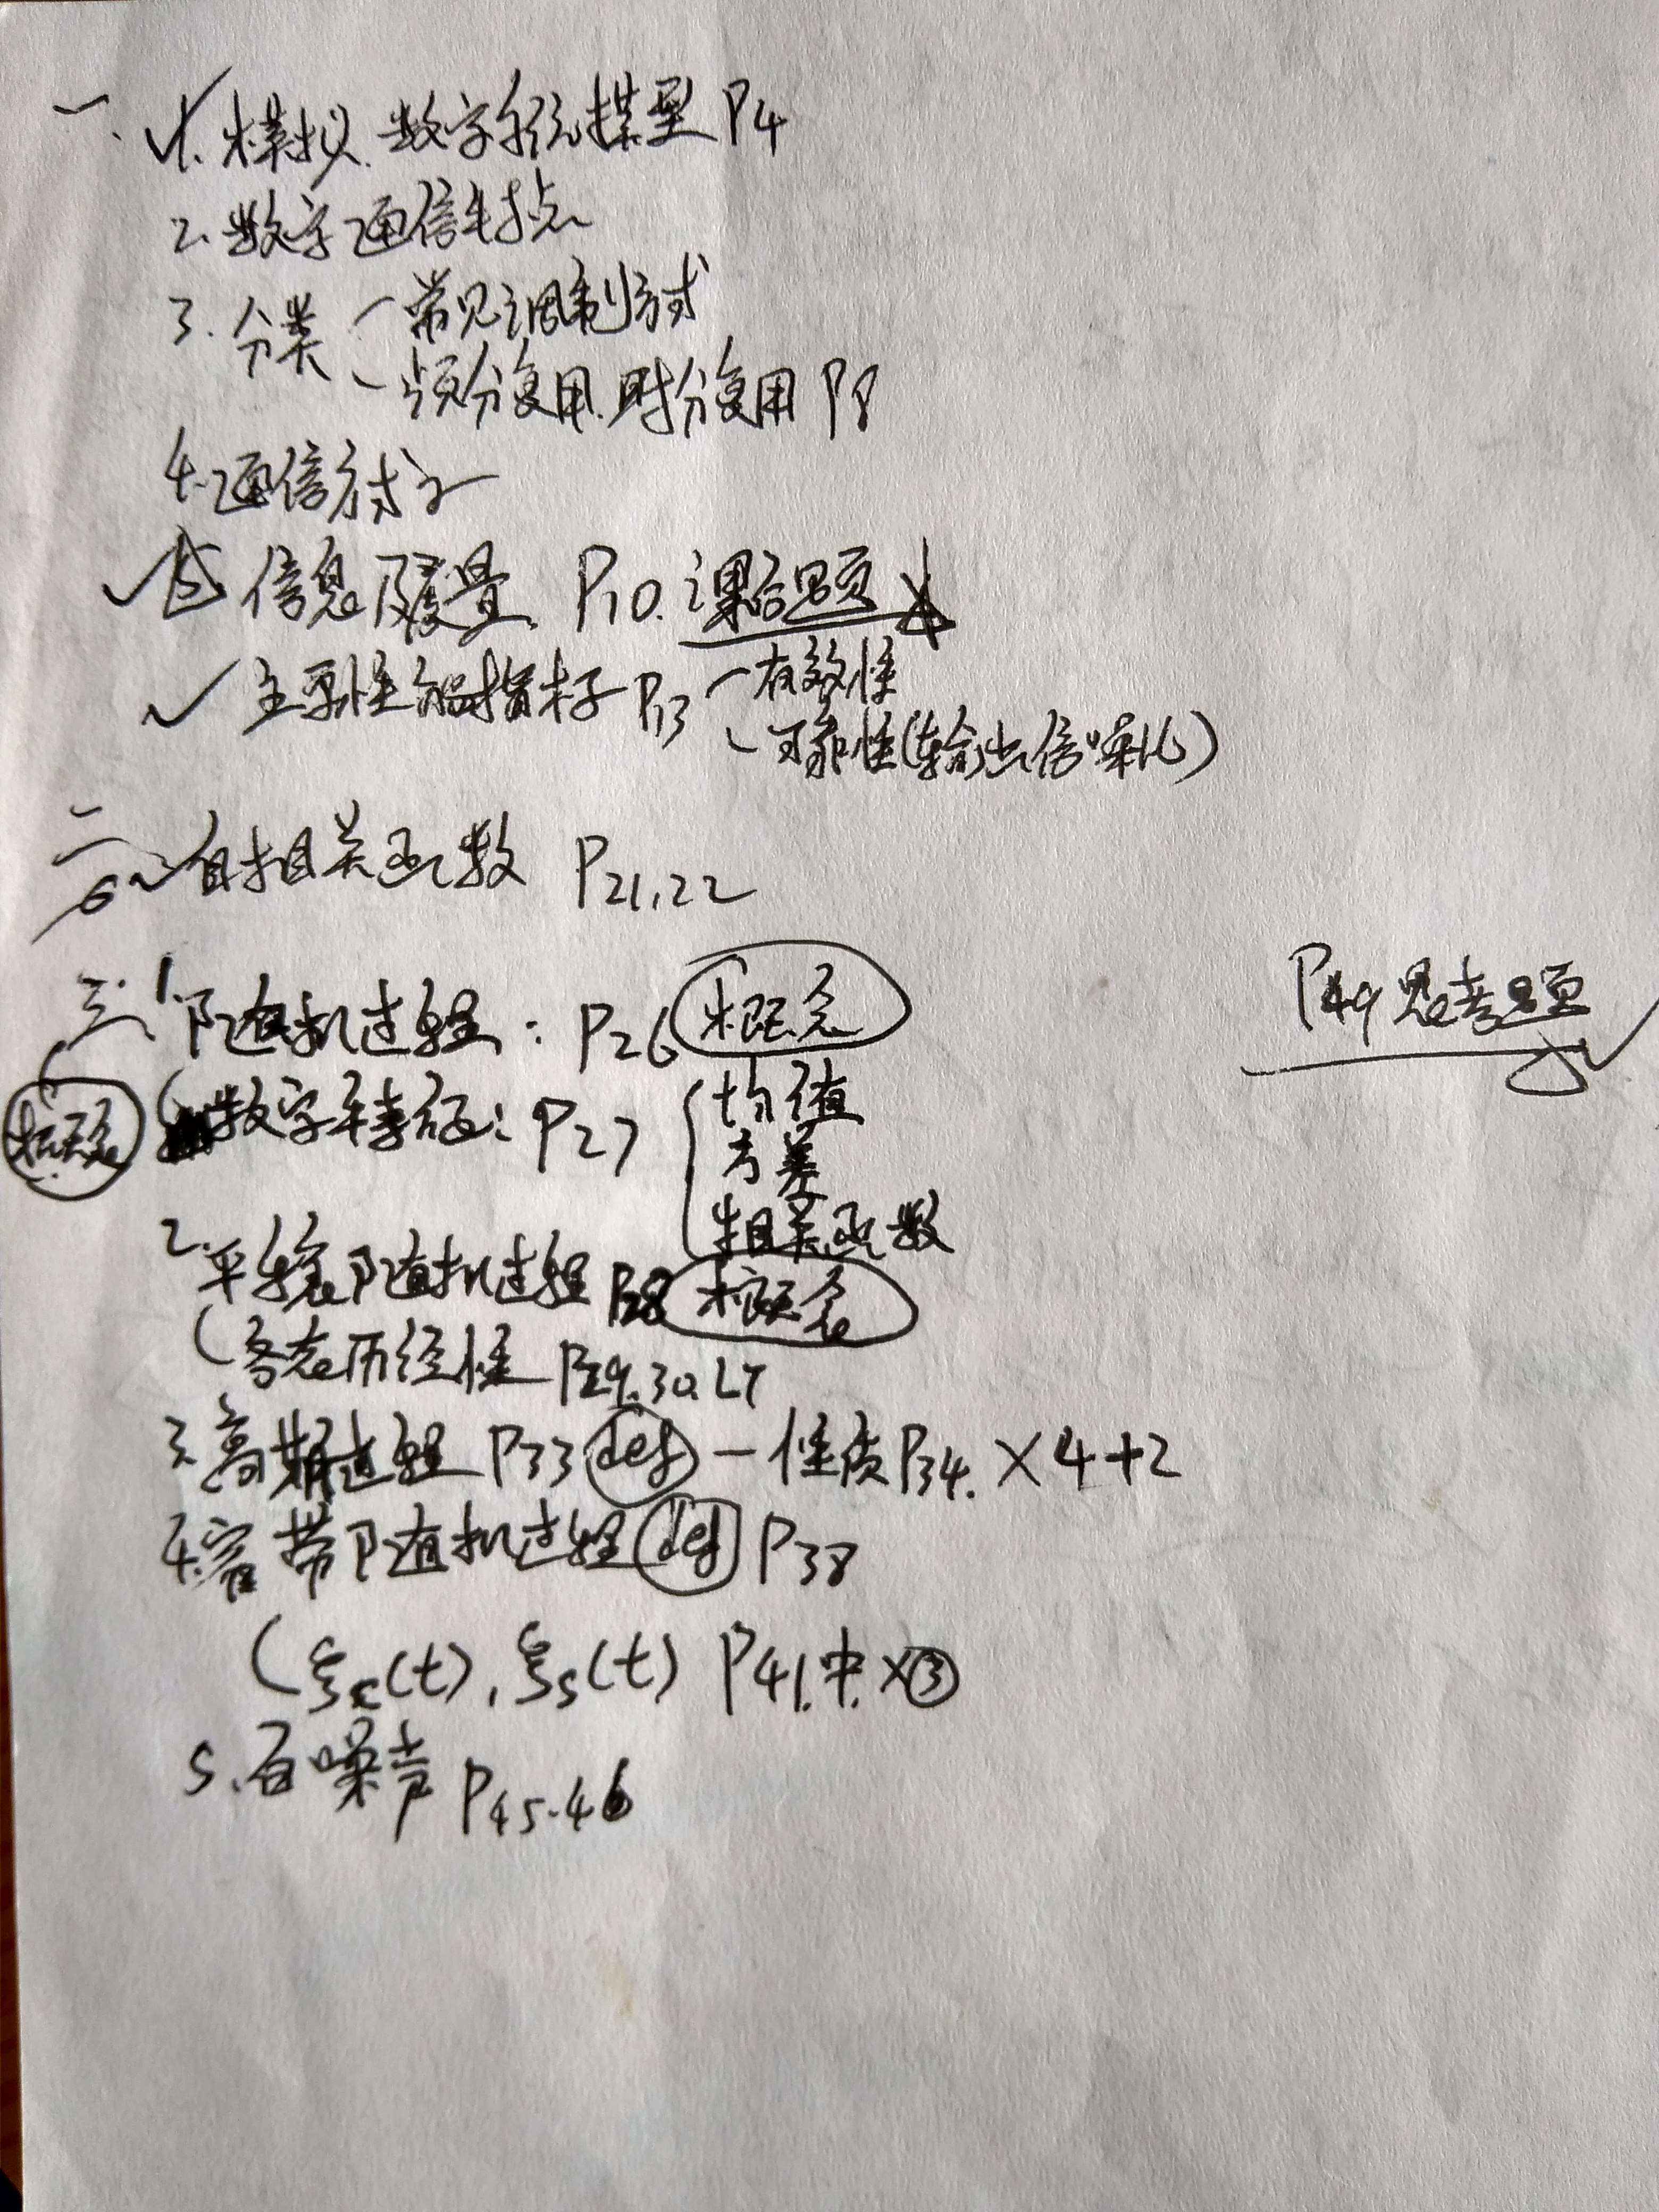 一. 1. 模拟. 数字系统模型 P4
2. 数字通信特点
3. 分类 — 常见调制方式
— 频分复用. 时分复用 P8
4. 通信方式
5 信息及度量 P10. 课后题
主要性能指标 P13 — 有效性
— 可靠性(输出信噪比)
二. 6 自相关函数 P21,22
三. 1. 随机过程: P26 概念
P49 思考题
概念 数字特征: P27 { 均值
方差
相关函数
2. 平稳随机过程 P28 概念
(各态历经性 P29.30.
3. 高斯过程 P33 def — 性质 P34. ×4+2
4. 窄带随机过程 def P38
(ξc(t), ξs(t) P41.中. ×③
5. 白噪声 P45.46